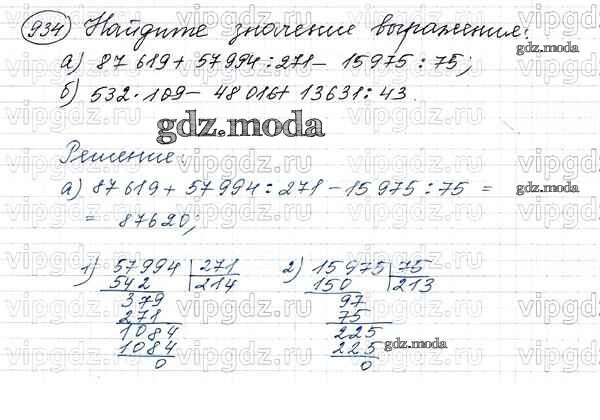 934 Найдите значение выражения:
а) 87 619 + 57 994 : 271 – 15 975 : 75;
б) 532 · 109 – 48 016 + 13 631 : 43.
gdz.moda
Решение.
а) 87 619 + 57 994 : 271 – 15 975 : 75 =
= 87 620;
1) 57994 | 271 2) 15975 | 75
542 214 150 213
379 97
271 75
1084 225
1084 225
0 0
gdz.moda
gdz.moda
gdz.moda
vipgdz.ru